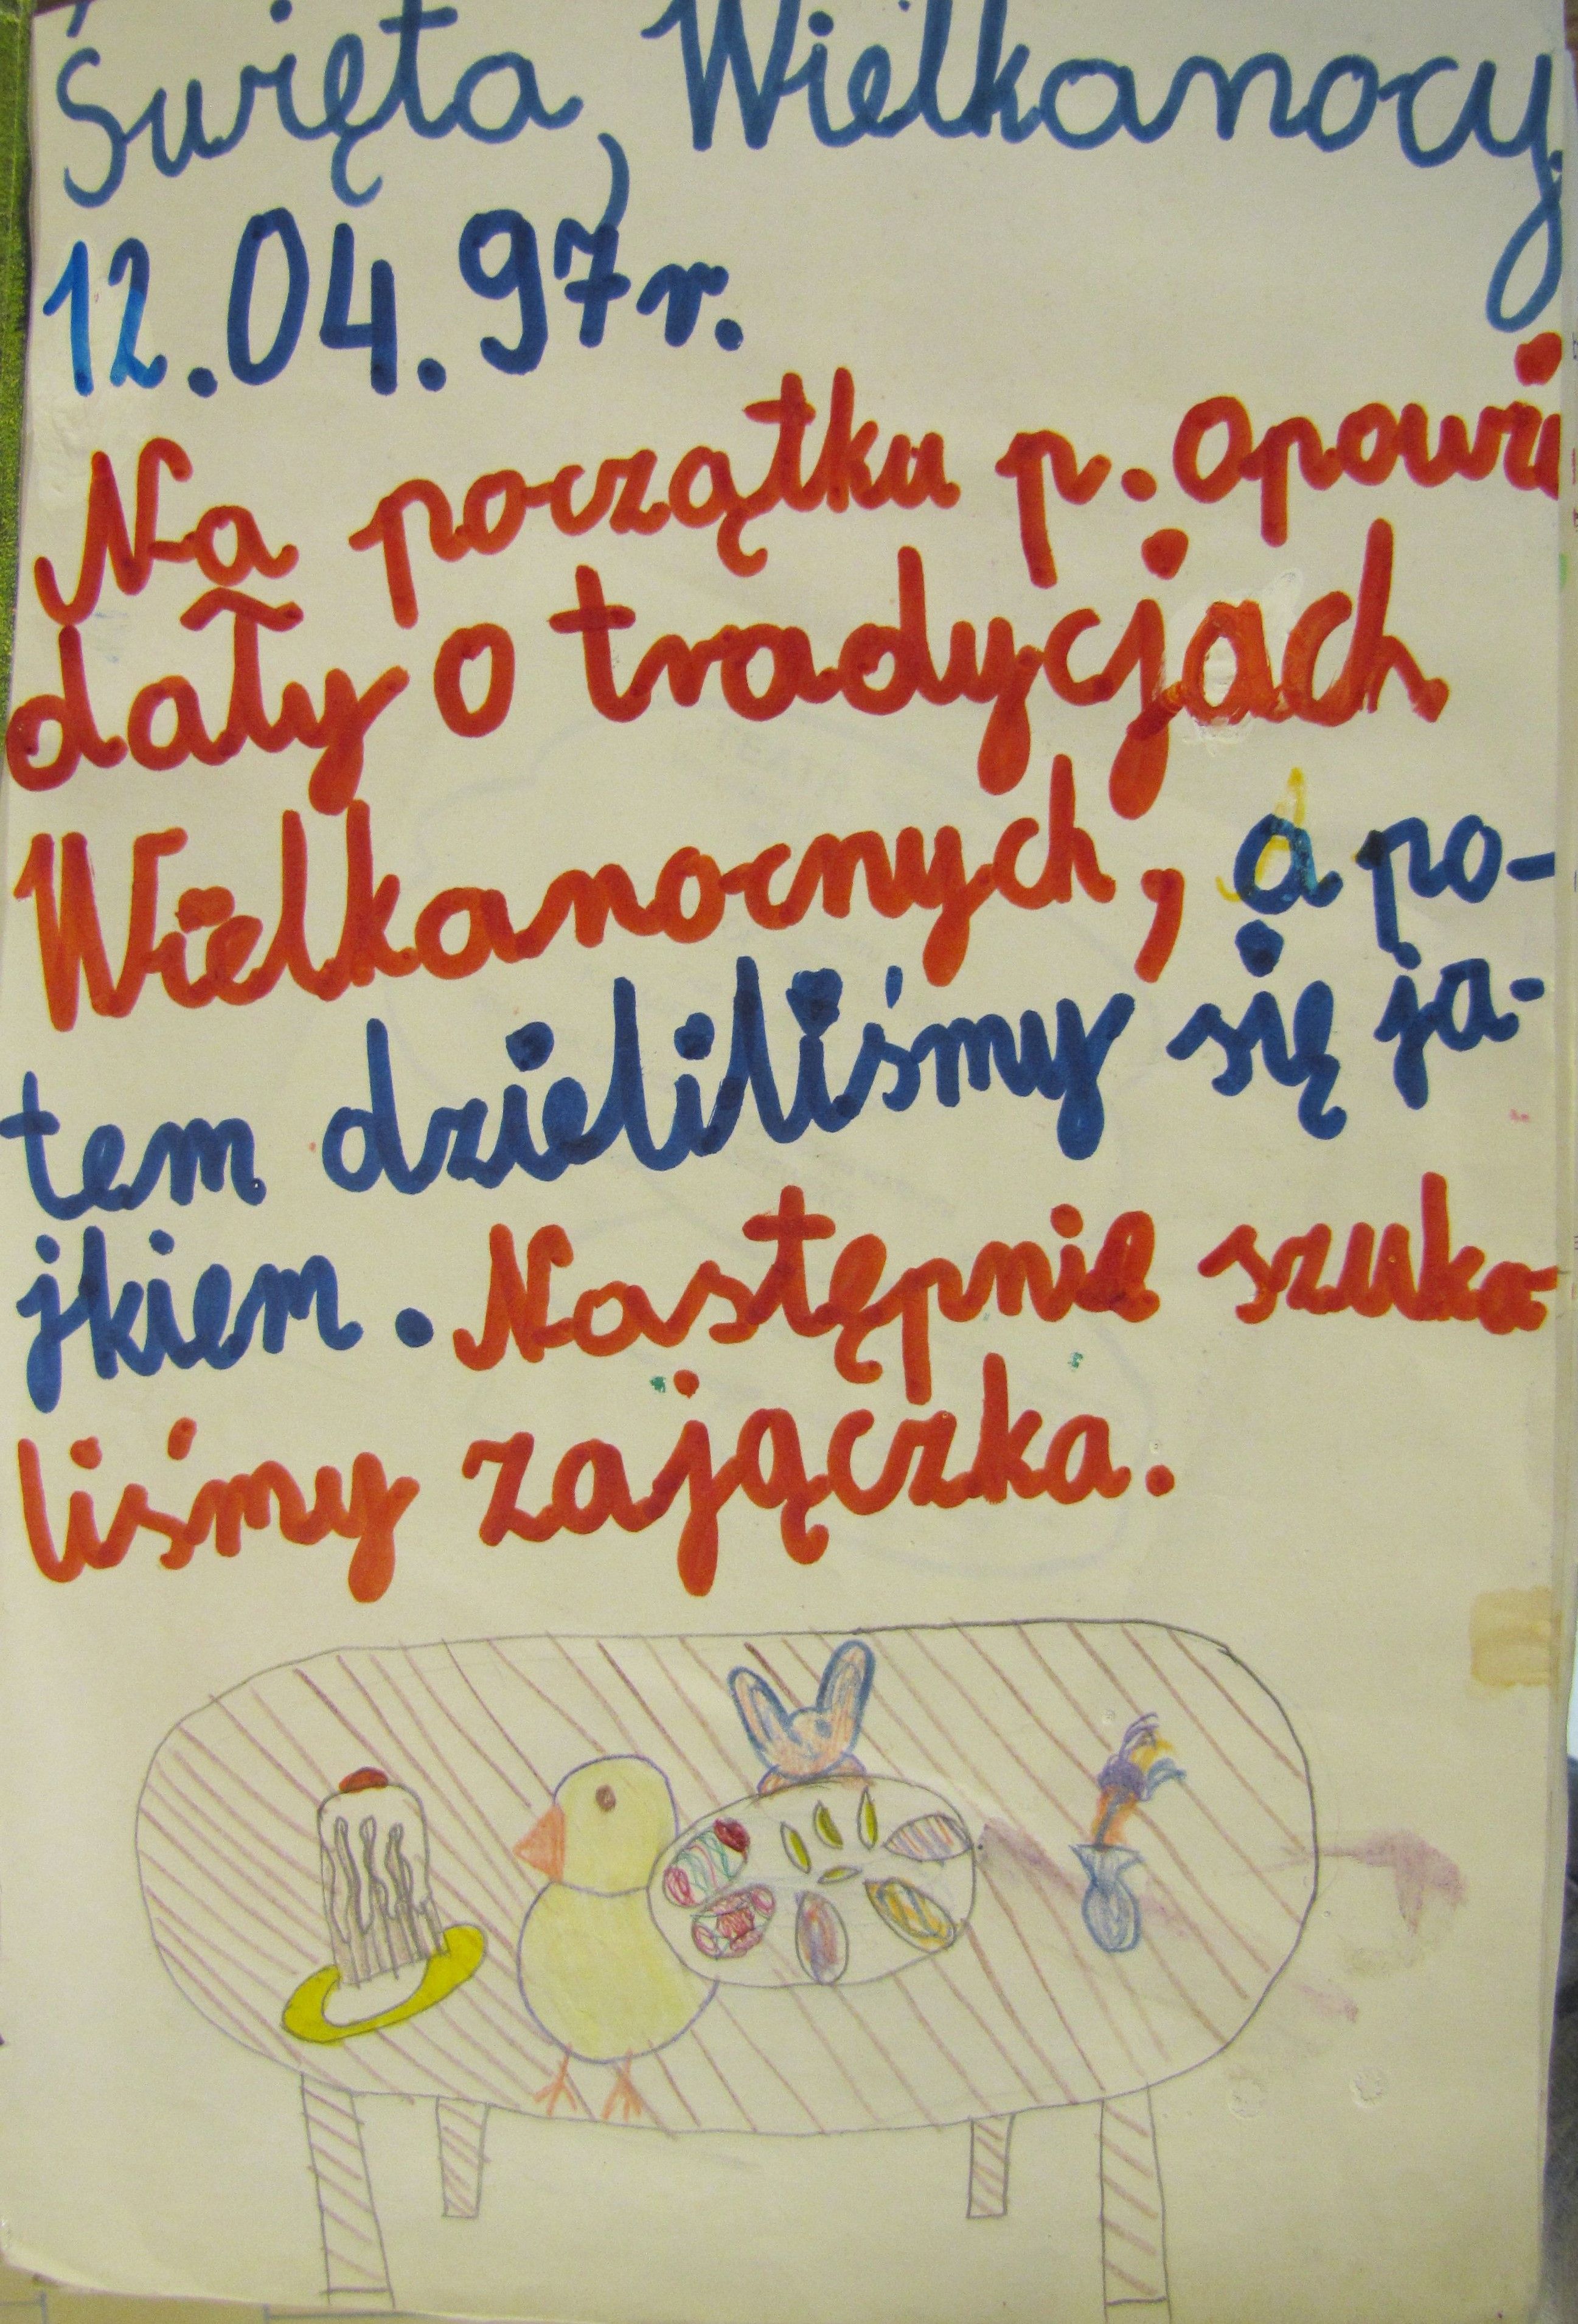 Święta Wielkanocy.
12.04.97r.
Na początku p. opowia
dały o tradycjach
Wielkanocnych, a po-
tem dzieliliśmy się ja-
jkiem. Następnie szuka-
liśmy zajączka.